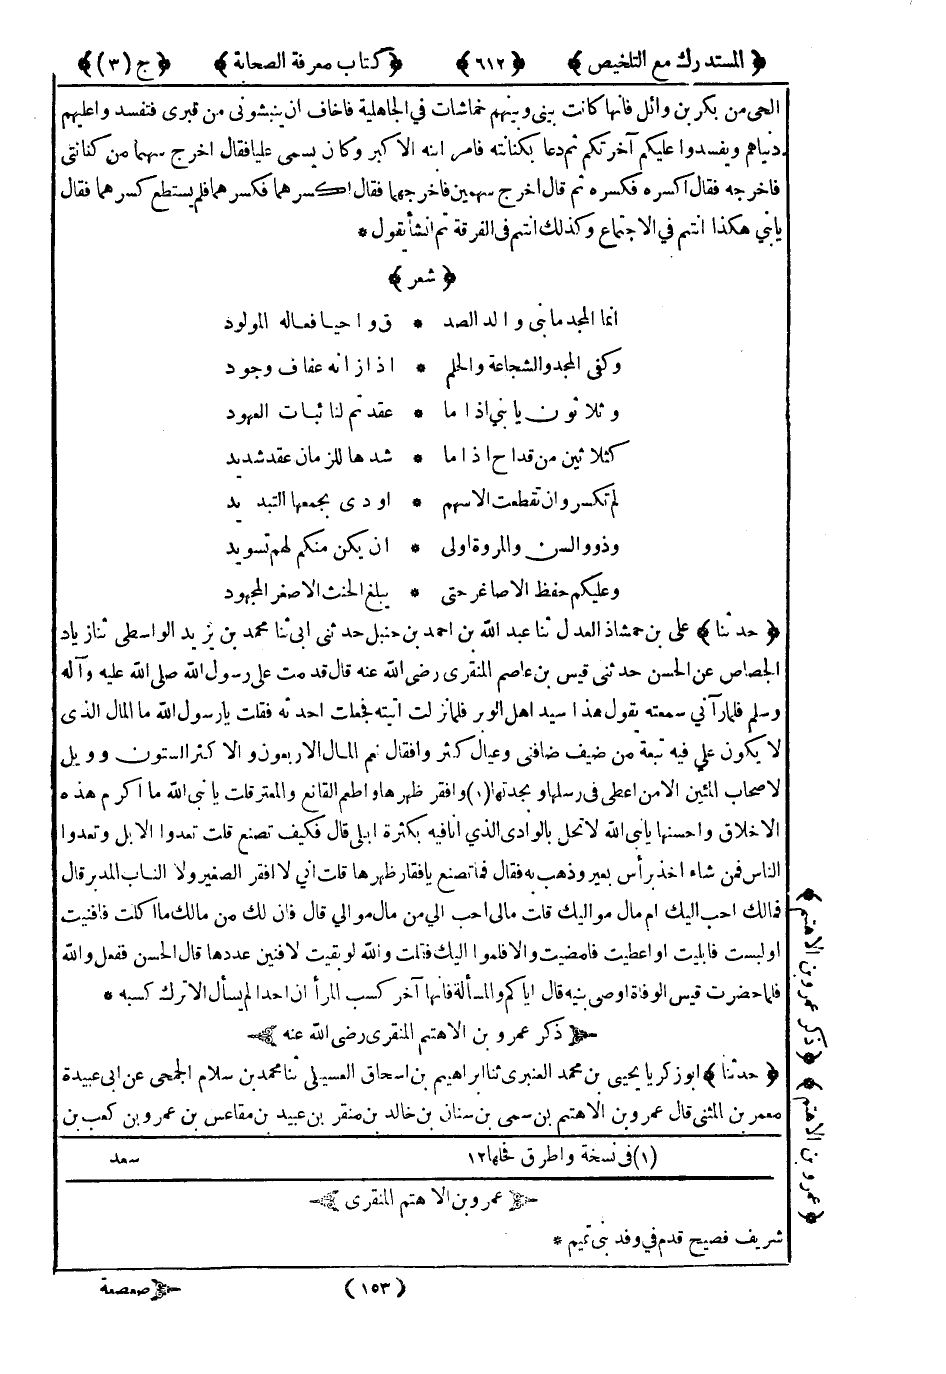 ﴿ المستدرك مع التلخيص ﴾ ﴿ ٦١٢ ﴾ ﴿ كتاب معرفة الصحابة ﴾ ﴿ ج (٣) ﴾
الحي من بكر بن وائل فانها كانت بيني وبينهم خماشات في الجاهلية فاخاف ان ينبشوني من قبرى فتفسد واعليهم
دنياهم ويفسدوا عليكم آخرتكم ثم دعا بكنانته فامر ابنه الاكبر وكان يسمى عليا فقال اخرج سهما من كنانتى
فاخرجه فقال اكسره فكسره ثم قال اخرج سهمين فاخرجهما فقال اكسرهما فكسرهما فلم يستطع كسرهما فقال
يابني هكذا انتم في الاجتماع وكذلك انتم فى الفرقة ثم انشأ يقول *
﴿ شعر ﴾
انما المجد مابنى والد الصد * ق واحيا فعاله المولود
وكفى المجد والشجاعة والحلم * اذا زانه عفاف وجود
وثلاثون يابني اذا ما * عقدتم لنائبات العهود
كثلاثين من قداح اذا ما * شدها للزمان عقد شديد
لم تكسر وان تقطعت الاسهم * اودى بجمعها التبديد
وذوو السن والمروة اولى * ان يكن منكم لهم تسويد
وعليكم حفظ الاصاغر حتى * يبلغ الحنث الاصغر المجهود
﴿ حدثنا ﴾ على بن حمشاذ العدل ثنا عبد الله بن احمد بن حنبل حدثنى ابى ثنا محمد بن يزيد الواسطى ثنا زياد
الجصاص عن الحسن حدثنى قيس بن عاصم المنقرى رضى الله عنه قال قدمت على رسول الله صلى الله عليه وآله
وسلم فلما رآني سمعته يقول هذا سيد اهل الوبر فلما نزلت اتيته فجعلت احدثه فقلت يارسول الله ما المال الذى
لا يكون علي فيه تبعة من ضيف ضافنى وعيال كثروا فقال نعم المال الاربعون والاكثر الستون وويل
لاصحاب المئين الامن اعطى فى رسلها ونجدتها (١) وافقر ظهرها واطعم القانع والمعتر قلت يانبي الله ما اكرم هذه
الاخلاق واحسنها يانبي الله لا تحل بالوادى الذي انا فيه بكثرة ابلى قال فكيف تصنع قلت تعدوا الابل وتعدوا
الناس فمن شاء اخذ برأس بعير وذهب به فقال فما تصنع بافقار ظهرها قلت اني لا افقر الصغير ولا الناب المدبر قال
فمالك احب اليك ام مال مواليك قلت مالى احب الي من مال موالي قال فان لك من مالك ما اكلت فافنيت
اولبست فابليت اواعطيت فامضيت والا فلمواليك فقلت والله لو بقيت لافنين عددها قال الحسن ففعل والله
فلما حضرت قيس الوفاة اوصى بنيه قال اياكم والمسألة فانها آخر كسب المرأ ان احدا لم يسأل الا ترك كسبه *
ذكر عمرو بن الاهتم المنقرى رضى الله عنه
﴿ حدثنا ﴾ ابو زكريا يحيى بن محمد العنبرى ثنا ابراهيم بن اسحاق العسيلى ثنا محمد بن سلام الجمحى عن ابى عبيدة
معمر بن المثنى قال عمرو بن الاهتم بن سمى بن سنان بن خالد بن منقر بن عبيد بن مقاعس بن عمرو بن كعب بن
سعد
(١) فى نسخة واطرق فحلها ١٢
عمرو بن الاهتم المنقرى
شريف فصيح قدم في وفد بنى تميم *
﴿ ذكر عمرو بن الاهتم ﴾
﴿ عمرو بن الاهتم ﴾
(١٥٣)
صعصعة